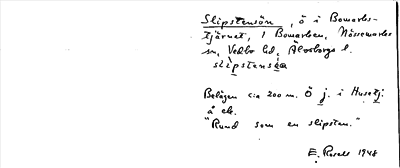 Slipstensön, ö i Bowarks-
tjärnet, 1 Bowarken, Nössemarks
sn, Vedbo hd, Älvsborgs l.
slipstensöa
Belägen c:a 200 m. Ö j. i Husetj.
å ek.
"Rund som en slipsten."
E. Rosell 1948